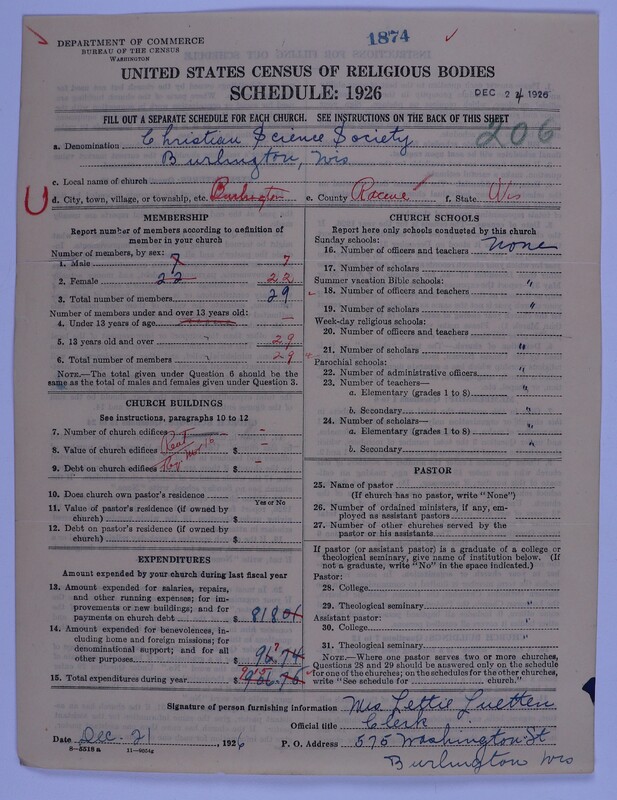 DEPARTMENT OF COMMERCE
BUREAU OF THE CENSUS
WASHINGTON
1874
UNITED STATES CENSUS OF RELIGIOUS BODIES
SCHEDULE: 1926
DEC 24 1926
FILL OUT A SEPARATE SCHEDULE FOR EACH CHURCH. SEE INSTRUCTIONS ON THE BACK OF THIS SHEET
206
a. Denomination Christian Science Society
Burlington, Wis
c. Local name of church
d. City, town, village, or township, etc. Burlington e. County Racine f. State Wis
MEMBERSHIP
Report number of members according to definition of
member in your church
Number of members, by sex:
1. Male 7 7
2. Female 22 22
3. Total number of members 29
Number of members under and over 13 years old:
4. Under 13 years of age —
5. 13 years old and over 29
6. Total number of members 29
NOTE.—The total given under Question 6 should be the
same as the total of males and females given under Question 3.
CHURCH BUILDINGS
See instructions, paragraphs 10 to 12
7. Number of church edifices Rent —
8. Value of church edifices $ —
9. Debt on church edifices $ —
10. Does church own pastor's residence
Yes or No
11. Value of pastor's residence (if owned by
church) $
12. Debt on pastor's residence (if owned by
church) $
EXPENDITURES
Amount expended by your church during last fiscal year
13. Amount expended for salaries, repairs,
and other running expenses; for im-
provements or new buildings; and for
payments on church debt $ 818
14. Amount expended for benevolences, in-
cluding home and foreign missions; for
denominational support; and for all
other purposes $ 96.74
15. Total expenditures during year $
CHURCH SCHOOLS
Report here only schools conducted by this church
Sunday schools:
16. Number of officers and teachers none
17. Number of scholars "
Summer vacation Bible schools:
18. Number of officers and teachers "
19. Number of scholars "
Week-day religious schools:
20. Number of officers and teachers "
21. Number of scholars "
Parochial schools:
22. Number of administrative officers "
23. Number of teachers—
a. Elementary (grades 1 to 8) "
b. Secondary "
24. Number of scholars—
a. Elementary (grades 1 to 8) "
b. Secondary "
PASTOR
25. Name of pastor
(If church has no pastor, write "None")
26. Number of ordained ministers, if any, em-
ployed as assistant pastors
27. Number of other churches served by the
pastor or his assistants
If pastor (or assistant pastor) is a graduate of a college or
theological seminary, give name of institution below. (If
not a graduate, write "No" in the space indicated.)
Pastor:
28. College "
29. Theological seminary "
Assistant pastor:
30. College "
31. Theological seminary "
NOTE.—Where one pastor serves two or more churches,
Questions 28 and 29 should be answered only on the schedule
for one of the churches; on the schedules for the other churches,
write "See schedule for church."
Signature of person furnishing information Mrs Lettie Luetten
Official title Clerk
Date Dec. 21, 1926 P. O. Address 575 Washington St
Burlington Wis
8—5518 a